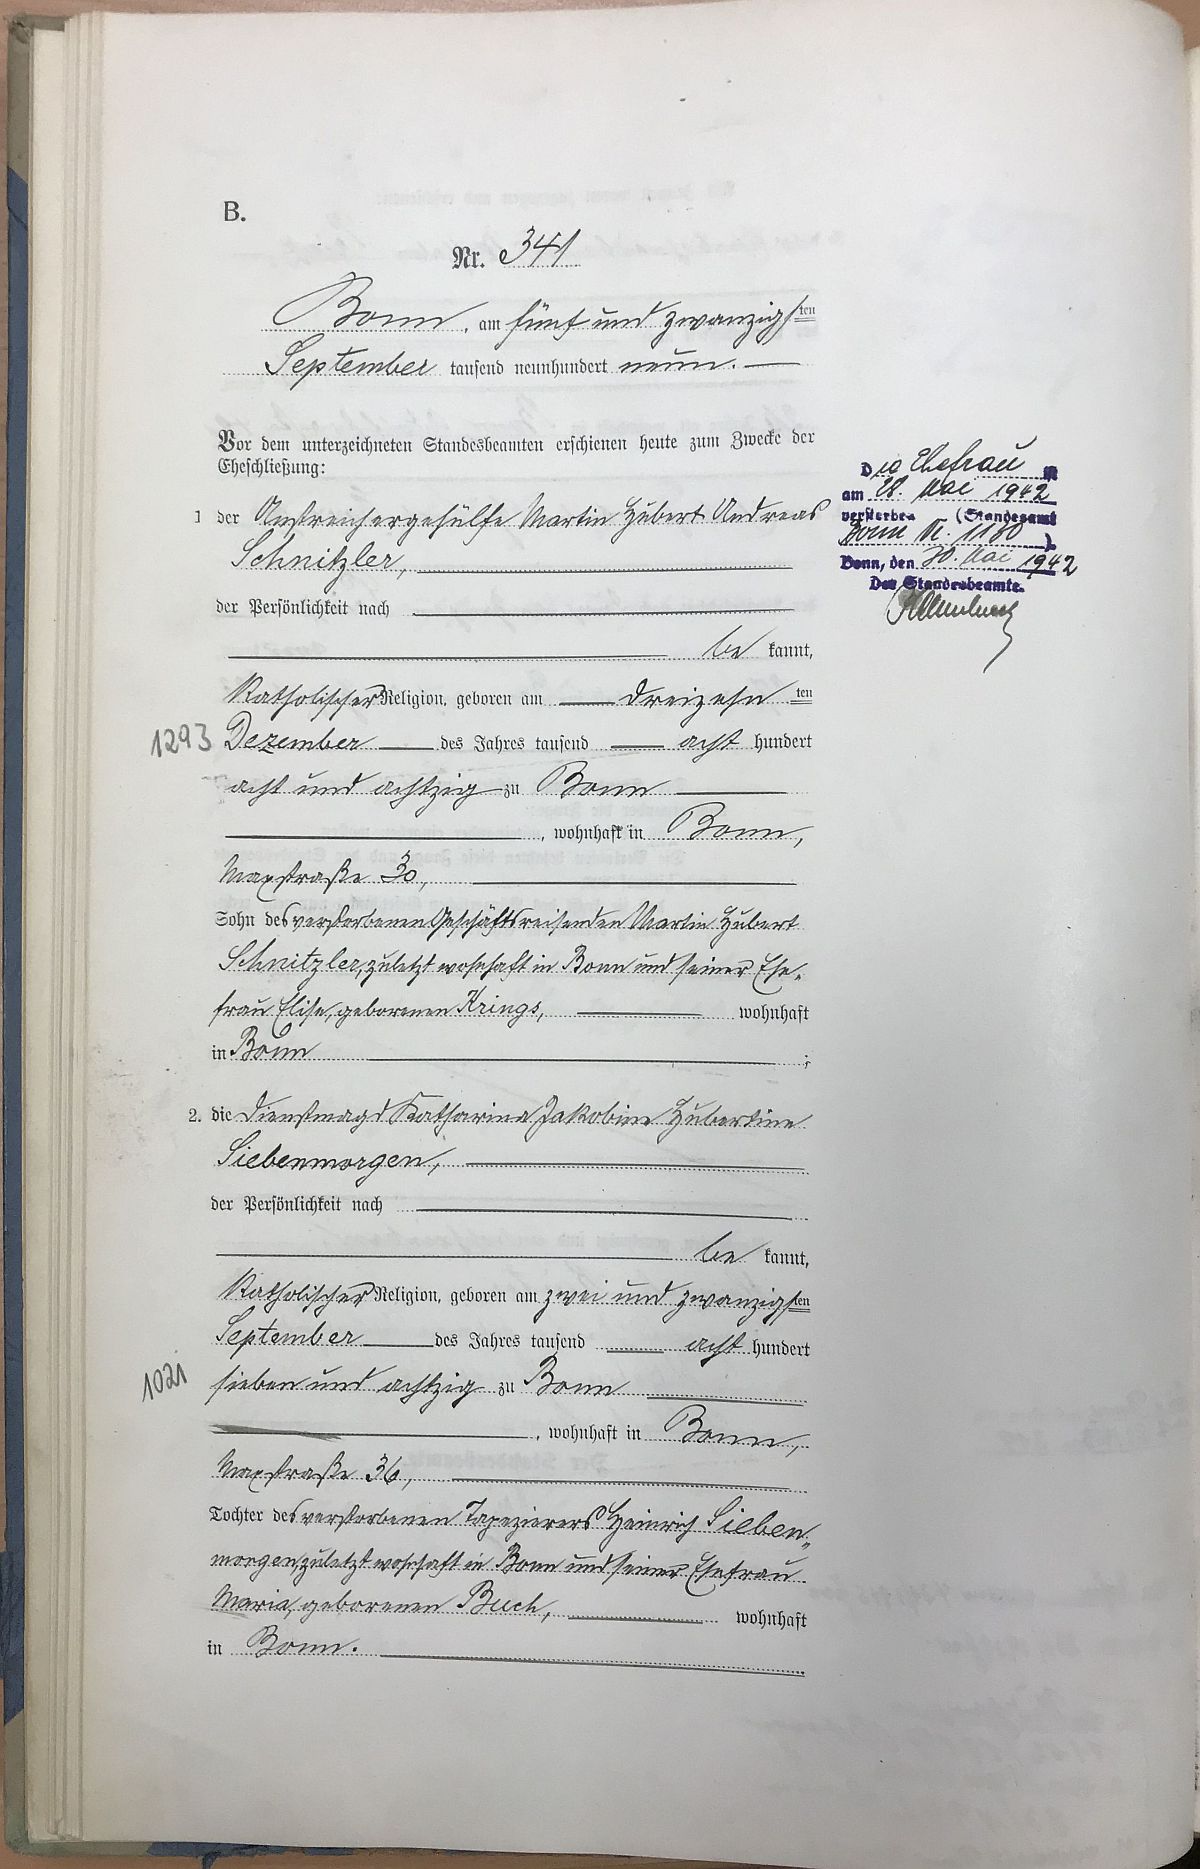 B.
Nr. 341
Bonn, am fünf und zwanzigsten
September tausend neunhundert neun.
Vor dem unterzeichneten Standesbeamten erschienen heute zum Zwecke der
Eheschließung:
1 der Anstreichergehülfe Martin Hubert Andreas
Schnitzler,
der Persönlichkeit nach
be kannt,
katholischer Religion, geboren am dreizehn ten
Dezember des Jahres tausend acht hundert
acht und achtzig zu Bonn
, wohnhaft in Bonn,
Maxstraße 30,
Sohn des verstorbenen Geschäftsreisenden Martin Hubert
Schnitzler, zuletzt wohnhaft in Bonn und seiner Ehe-
frau Elise, geborenen Krings, wohnhaft
in Bonn ;
2. die Dienstmagd Katharina Jakobine Hubertine
Siebenmorgen,
der Persönlichkeit nach
be kannt,
katholischer Religion, geboren am zwei und zwanzigsten
September des Jahres tausend acht hundert
sieben und achtzig zu Bonn
, wohnhaft in Bonn,
Maxstraße 36,
Tochter des verstorbenen Tapezierers Heinrich Sieben-
morgen, zuletzt wohnhaft in Bonn und seiner Ehefrau
Maria, geborenen Buch, wohnhaft
in Bonn.
1293
1021
Die Ehefrau ist
am 28. Mai 1942
verstorben (Standesamt
Bonn Nr. 1130 ).
Bonn, den 30. Mai 1942
Der Standesbeamte.